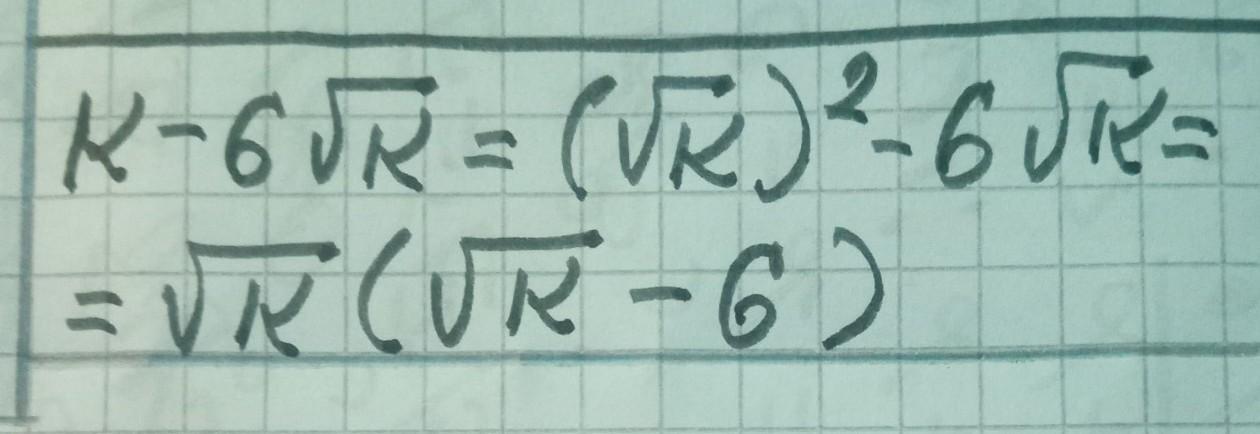 K - 6√K = (√K)² - 6√K =
= √K (√K - 6)